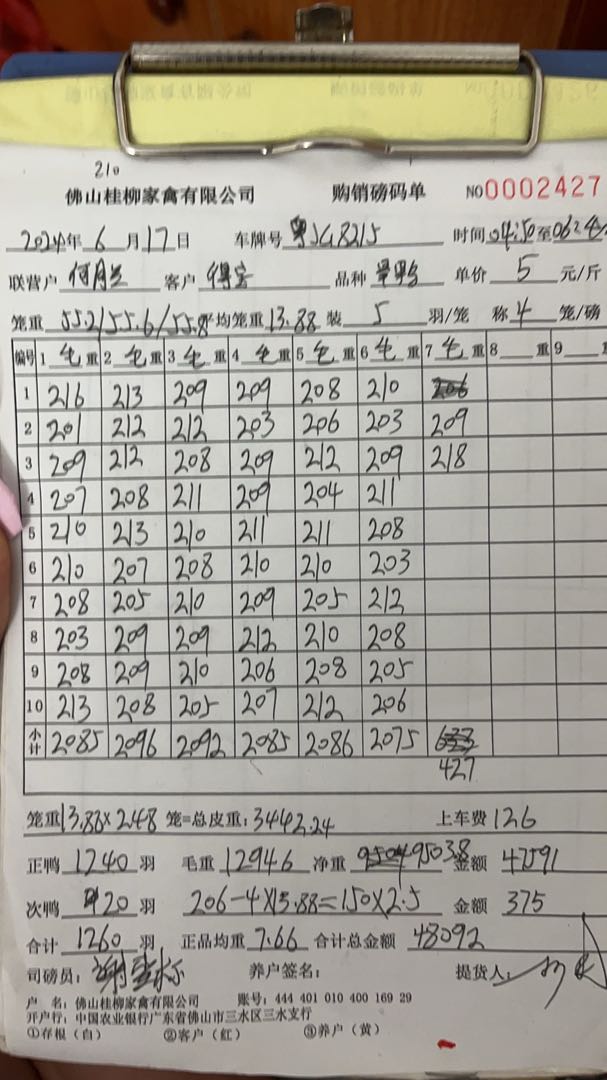 210
佛山桂柳家禽有限公司 购销磅码单 NO 0002427
2024年 6 月 17 日 车牌号 粤JG8215 时间 04:50至06:24
联营户 何月兰 客户 得宝 品种 单价 5 元/斤
笼重 55.2/55.6/55.8 平均笼重 13.88 装 5 羽/笼 称 4 笼/磅
编号 1 毛重 2 毛重 3 毛重 4 毛重 5 毛重 6 毛重 7 毛重 8 重 9
1 216 213 209 209 208 210 206
2 201 212 212 203 206 203 209
3 209 212 208 209 212 209 218
4 207 208 211 209 204 211
5 210 213 210 211 211 208
6 210 207 208 210 210 203
7 208 205 210 209 205 212
8 203 209 209 212 210 208
9 208 209 210 206 208 205
10 213 208 205 207 212 206
小计 2085 2096 2092 2085 2086 2075 633
427
笼重13.88×248 笼=总皮重:3442.24 上车费 126
正鸭 1240 羽 毛重 12946 净重 9504 9503.8 金额 47591
次鸭 20 羽 206-4×13.88=150×2.5 金额 375
合计 1260 羽 正品均重 7.66 合计总金额 48092
司磅员: 养户签名: 提货人:
户 名:佛山桂柳家禽有限公司 账号:444 401 010 400 169 29
开户行:中国农业银行广东省佛山市三水区三水支行
①存根(白) ②客户(红) ③养户(黄)